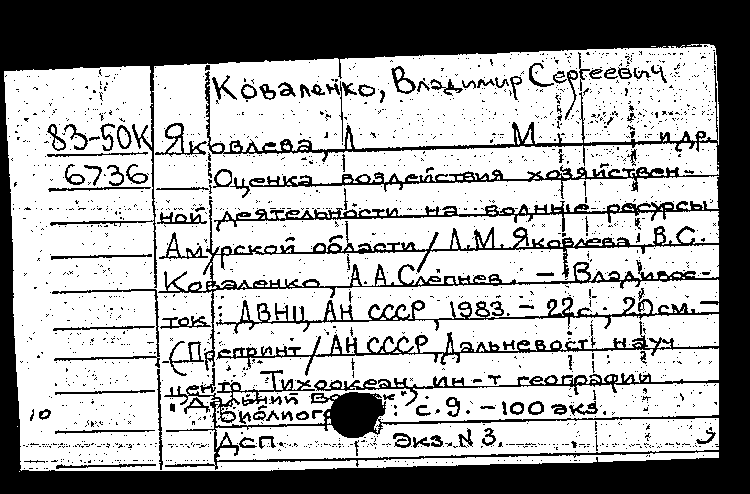 Коваленко, Владимир Сергеевич
83-50К Яковлева, Л М и др.
6736 Оценка воздействия хозяйствен-
ной деятельности на водные ресурсы
Амурской области / Л.М. Яковлева, В.С.
Коваленко, А.А. Слепнев. - Владивос-
ток : ДВНЦ АН СССР, 1983. - 22 с. ; 20 см. -
(Препринт / АН СССР, Дальневост. науч
центр, Тихоокеан. ин-т географии
"Дальний
10 библиогр : с. 9. - 100 экз.
Дсп. экз. N 3.